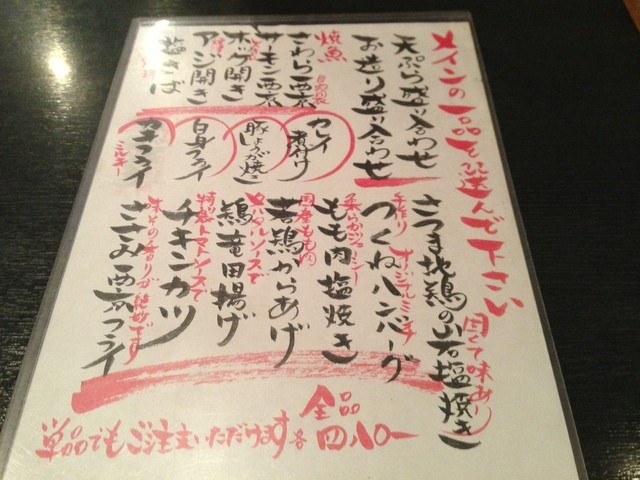 メインの一品を選んで下さい
天ぷら盛り合わせ
お造り盛り合わせ
焼魚
さわら西京
サーモン西京
ホッケ開き
アジ開き
塩さば
カレイ煮付け
豚しょうが焼き
白身フライ
カキフライ
ミルキー
固くて味あり
さつま地鶏の岩塩焼き
手作り オリジナルミンチ
つくねハンバーグ
柔らかジューシー
もも肉塩焼き
国産もも肉
若鶏からあげ
タルタルソースで
鶏竜田揚げ
特製トマトソースで
チキンカツ
味その香りが絶妙です
ささみ西京フライ
全品
四八〇ー
単品でもご注文いただけます 各